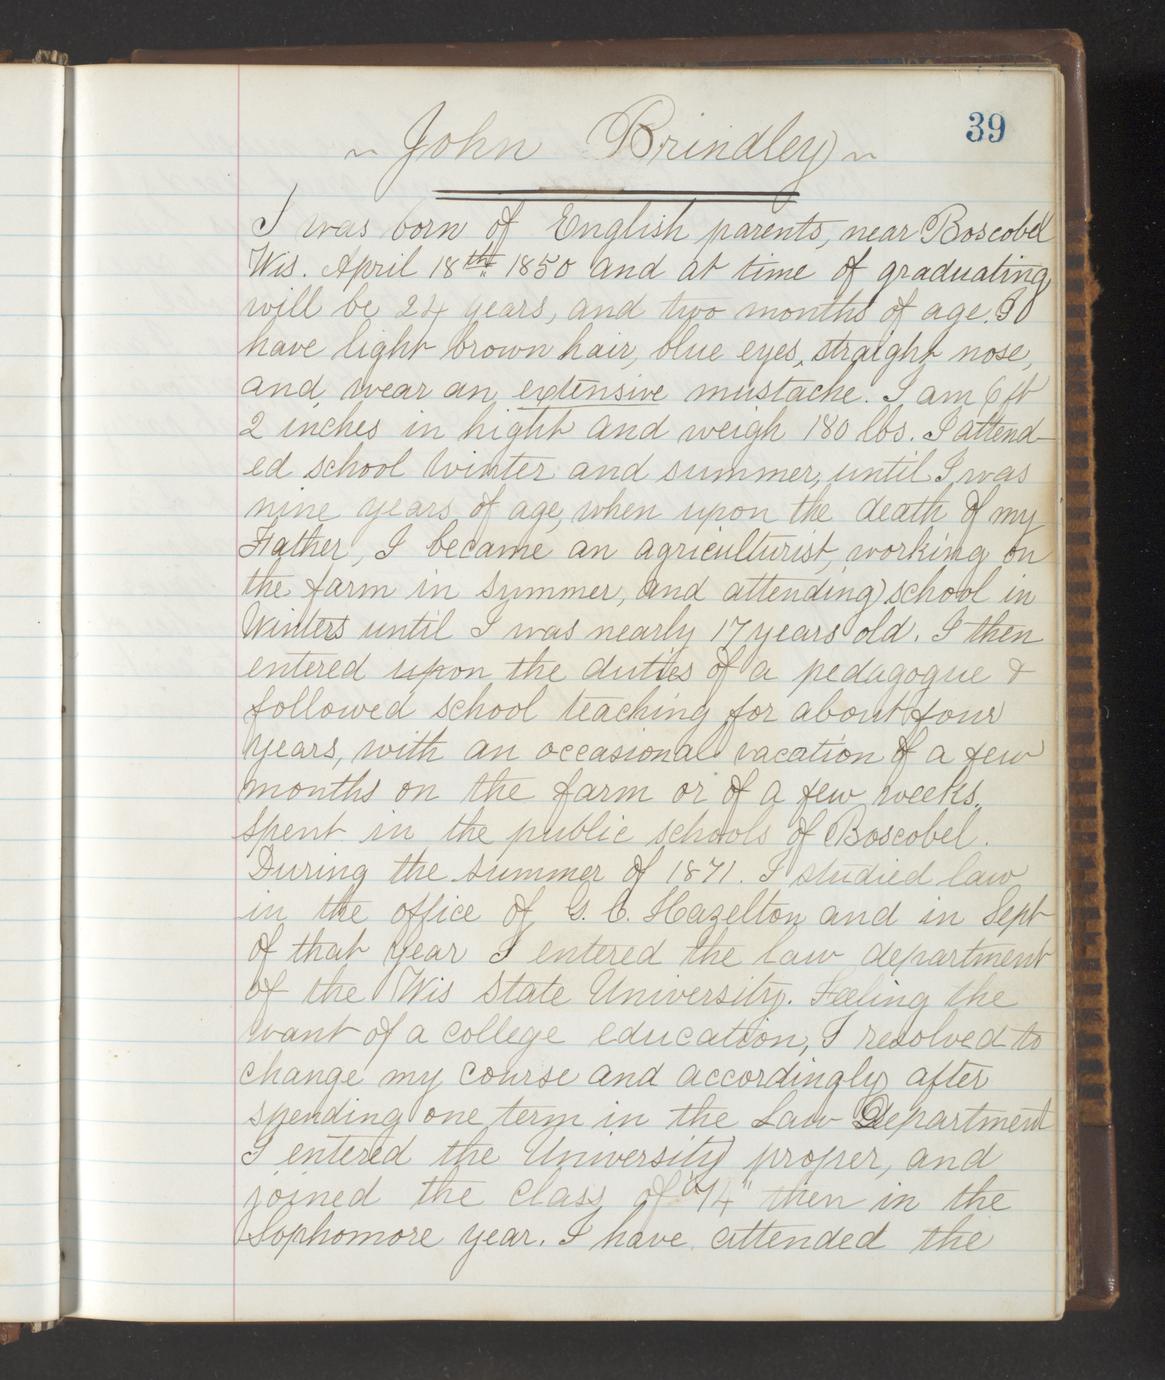 39
~ John Brindley ~
I was born of English parents, near Boscobel
Wis. April 18th 1850 and at time of graduating
will be 24 years, and two months of age. I
have light brown hair, blue eyes, straight nose,
and wear an extensive mustache. I am 6 ft
2 inches in hight and weigh 180 lbs. I attend-
ed school Winter and summer, until I was
nine years of age, when upon the death of my
Father, I became an agriculturist, working on
the farm in summer, and attending school in
Winters until I was nearly 17 years old. I then
entered upon the duties of a pedagogue &
followed school teaching for about four
years, with an occasional vacation of a few
months on the farm or of a few weeks,
spent in the public schools of Boscobel.
During the summer of 1871. I studied law
in the office of G. C. Hazelton and in Sept
of that year I entered the law department
of the Wis State University. Feeling the
want of a college education, I resolved to
change my course and accordingly after
spending one term in the Law Department
I entered the University proper, and
joined the class of "74" then in the
Sophomore year. I have attended the